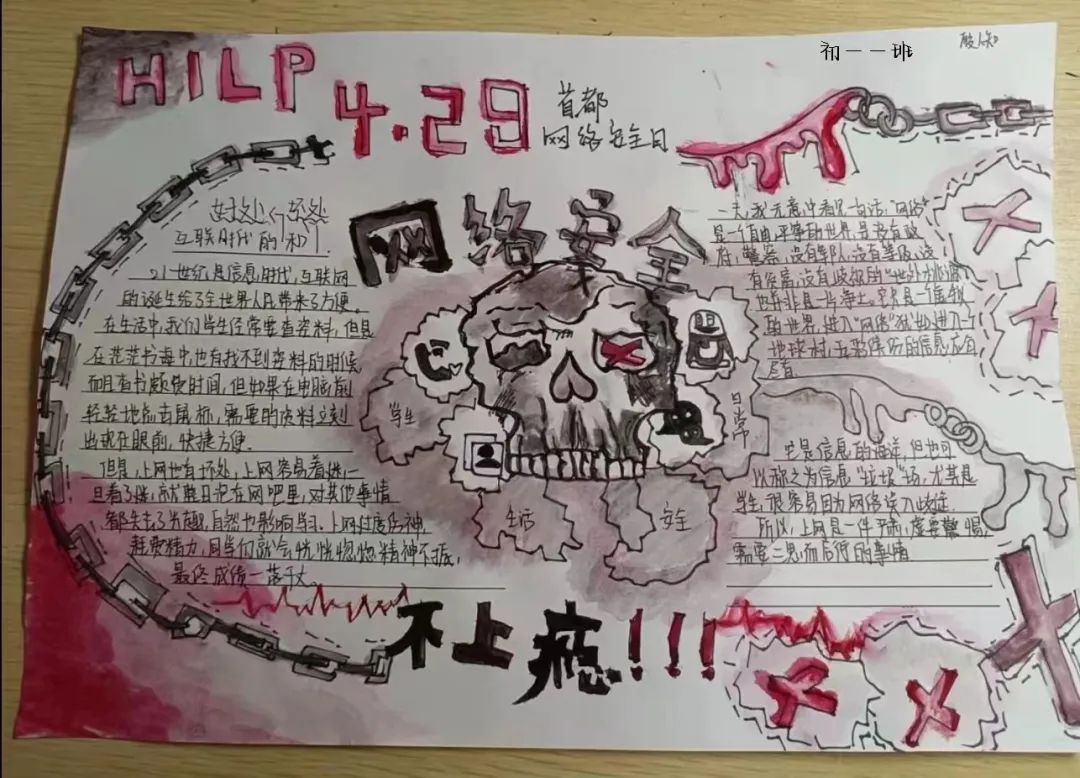 HILP
4.29
首都
网络安全日
初一一班
网络安全
好处坏处
互联时代的利
21世纪是信息时代,互联网
的诞生给了全世界人民带来了方便。
在生活中,我们学生经常要查资料,但是
在茫茫书海中也有找不到资料的时候,
而且查书颇费时间,但如果在电脑前
轻轻地点击鼠标,需要的资料立刻
出现在眼前,快捷方便。
但是,上网也有坏处,上网容易着迷,一
旦着了迷,就整日泡在网吧里,对其他事情
都失去了兴趣,自然也影响学习。上网过度伤神,
耗费精力,同学们就会恍恍惚惚精神不振,
最终成绩一落千丈
学生
日常
生活
安全
一天,我无意中看见一句话:“网络”
是一个自由、平等的世界,是没有政
府,警察,没有军队,没有等级,没
有贫富,没有歧视的“世外桃源”
也并非是一片净土。它只是一个虚拟
的世界,进入“网络”犹如进入了
地球村,五彩缤纷的信息应有
尽有
它是信息的海洋,但也可
以称之为信息“垃圾”场,尤其是
学生,很容易因为网络误入歧途
所以,上网是一件严肃,需要警惕,
需要三思而后行的事情
不上瘾!!!